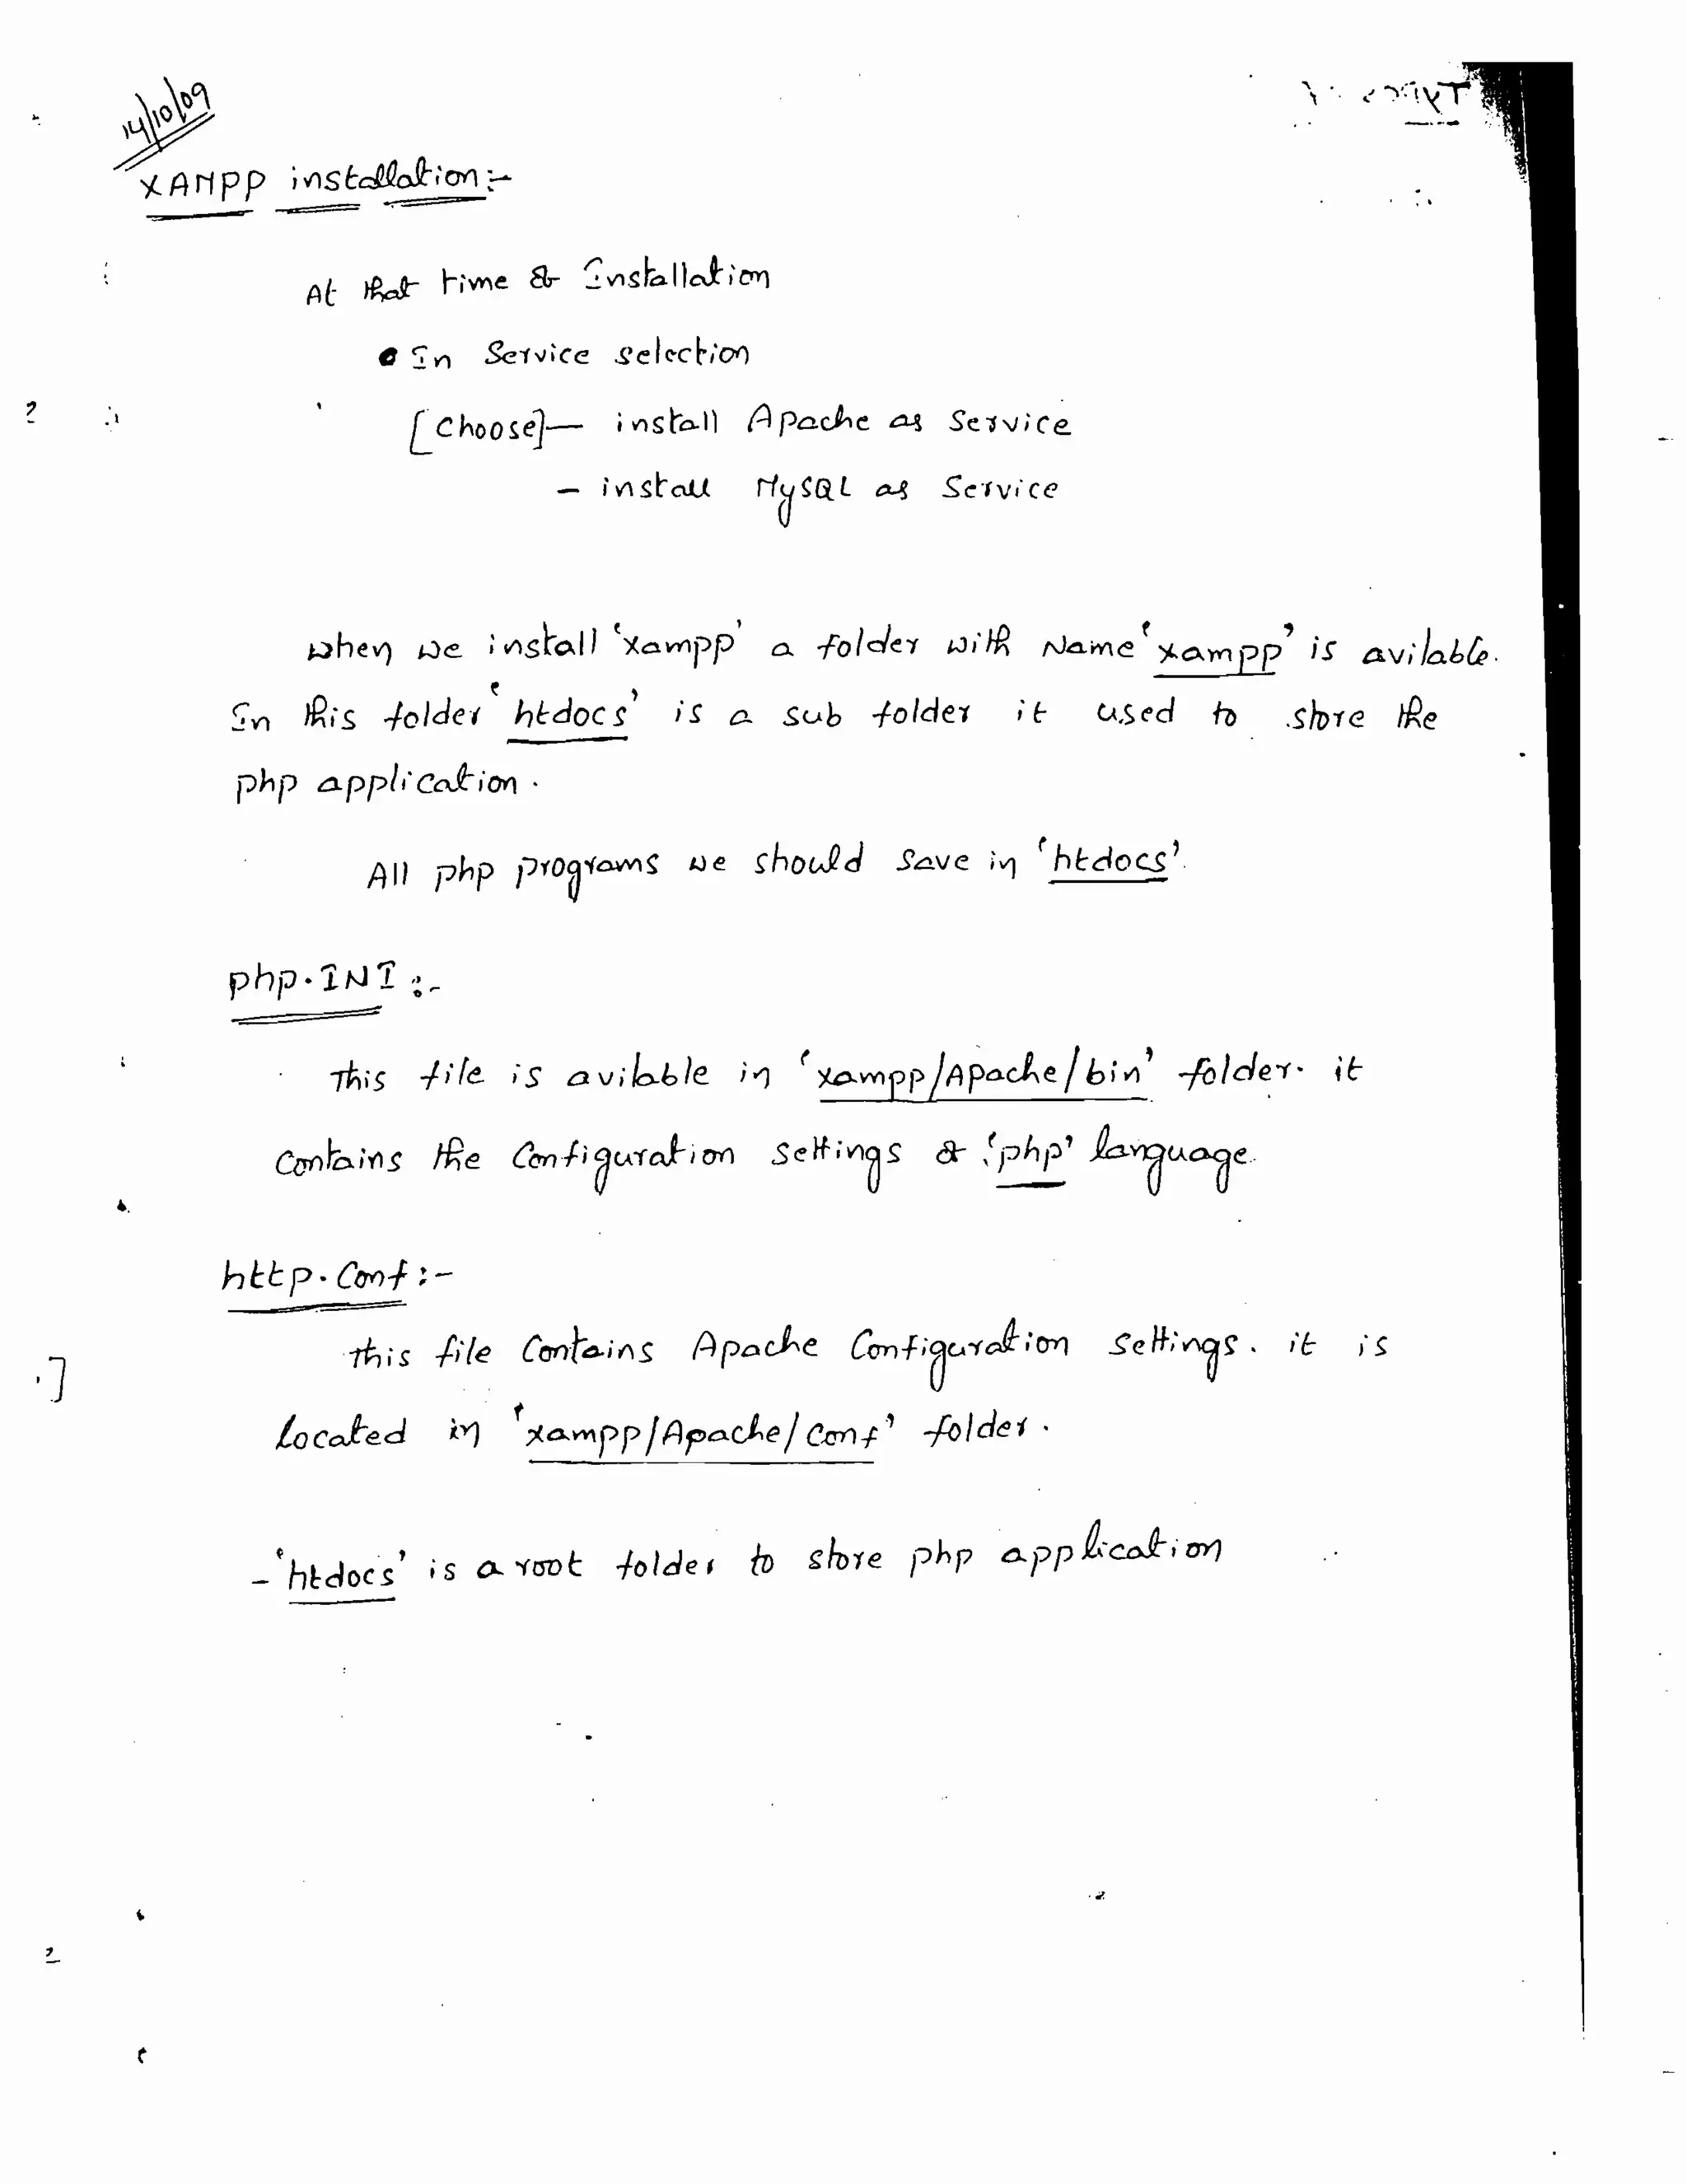 14/10/09
XAMPP installation:-
At that time of Installation
• In Service selection
[Choose]— install Apache as Service
- install MySQL as Service
when we install 'xampp' a folder with Name 'xampp' is avilable.
In this folder 'htdocs' is a sub folder it used to store the
php application.
All php programs we should save in 'htdocs'.
php.INI :-
This file is avilable in 'xampp/Apache/bin' folder. it
Contains the Configuration settings of 'php' language.
http.Conf :-
This file Contains Apache Configuration settings. it is
located in 'xampp/Apache/Conf' folder.
- 'htdocs' is a root folder to store php application